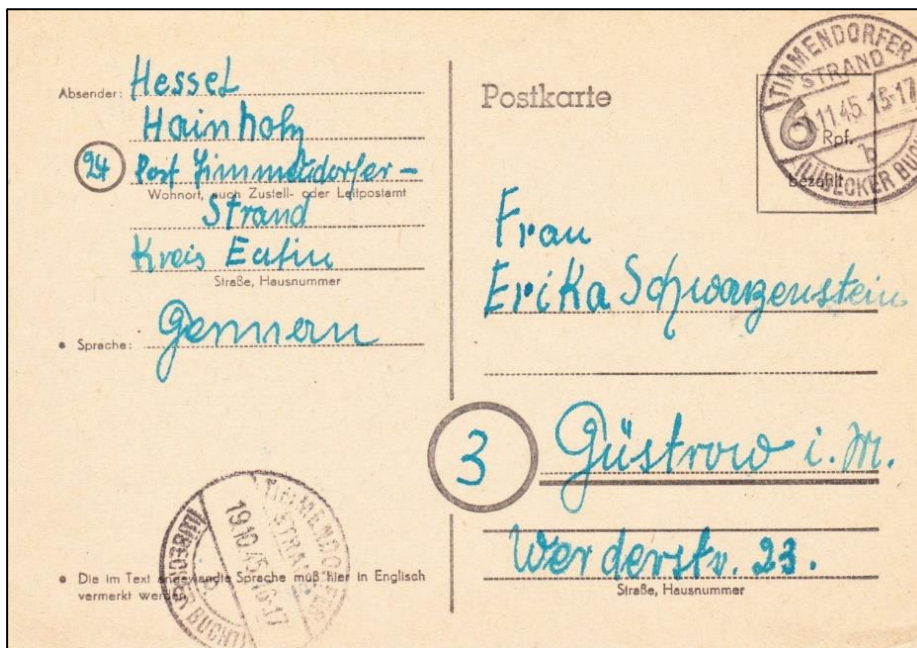 Absender: Hessel
Hainholz
24 Post Timmendorfer-
Wohnort, auch Zustell- oder Leitpostamt
Strand
Kreis Eutin
Straße, Hausnummer
• Sprache: German
• Die im Text angewandte Sprache muß hier in Englisch
vermerkt werden
TIMMENDORFER
STRAND
19.10.45 16-17
b
(LÜBECKER BUCHT)
Postkarte
TIMMENDORFER
STRAND
11.45.15-17
b
(LÜBECKER BUCHT)
6
Rpf.
bezahlt
Frau
Erika Schwarzenstein
3 Güstrow i. M.
Werderstr. 23.
Straße, Hausnummer